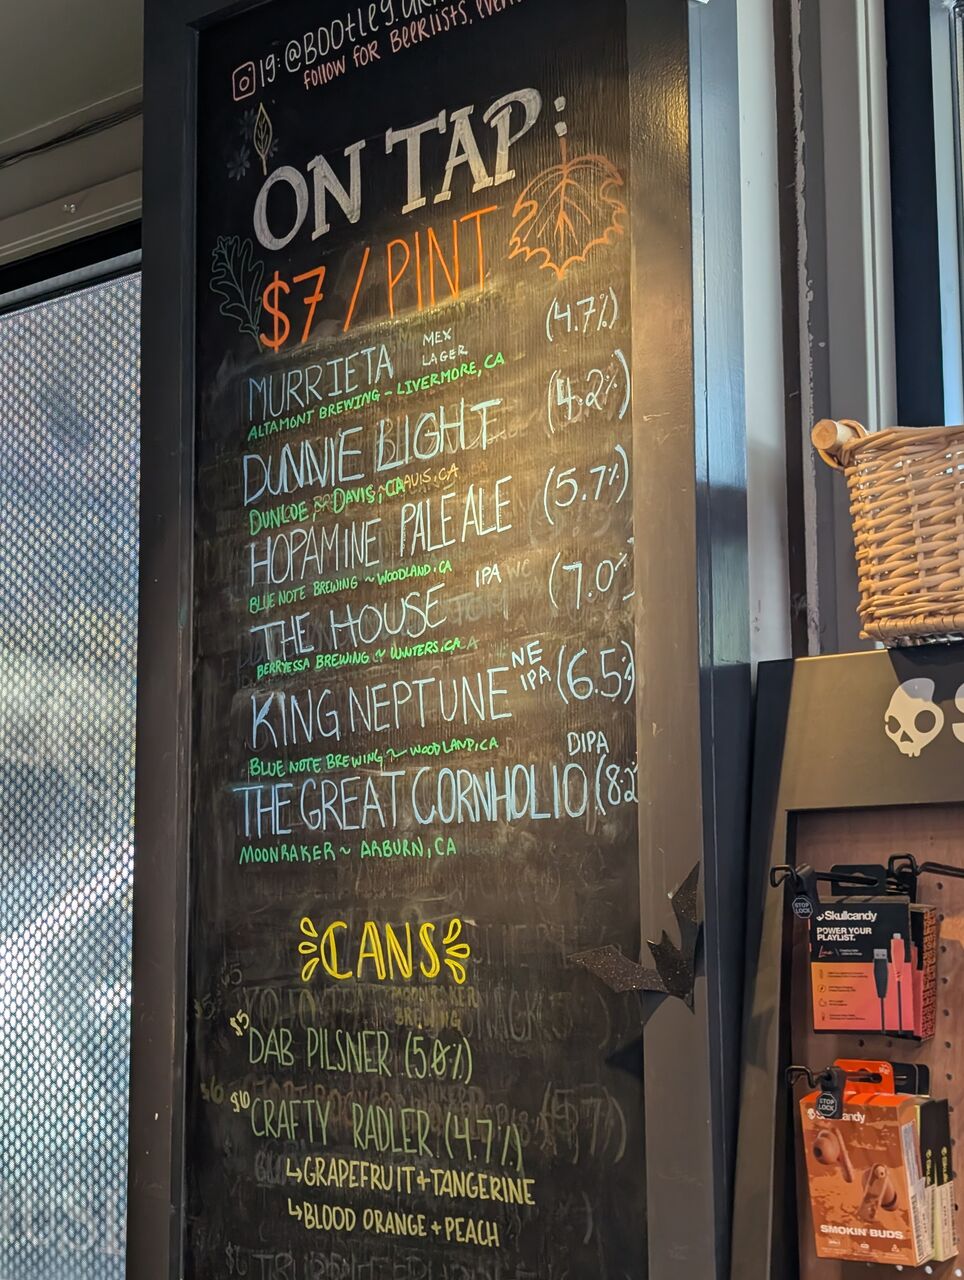 IG: @BOOTLEG.
FOLLOW FOR BEER LISTS, EVEN
ON TAP:
$7 / PINT
MURRIETA MEX LAGER (4.7%)
ALTAMONT BREWING ~ LIVERMORE, CA
DUNNIE LIGHT (4.2%)
DUNLOE ~ DAVIS, CA
HOPAMINE PALE ALE (5.7%)
BLUE NOTE BREWING ~ WOODLAND, CA
THE HOUSE IPA (7.0%
BERRYESSA BREWING ~ WINTERS, CA
KING NEPTUNE NE IPA (6.5%)
BLUE NOTE BREWING ~ WOODLAND, CA
THE GREAT CORNHOLIO DIPA (8.2
MOONRAKER ~ ARBURN, CA
CANS
$5 DAB PILSNER (5.0%)
$6 CRAFTY RADLER (4.7%)
↳ GRAPEFRUIT + TANGERINE
↳ BLOOD ORANGE + PEACH
STOP LOCK
Skullcandy
POWER YOUR PLAYLIST.
Line
STOP LOCK
andy
SMOKIN' BUDS